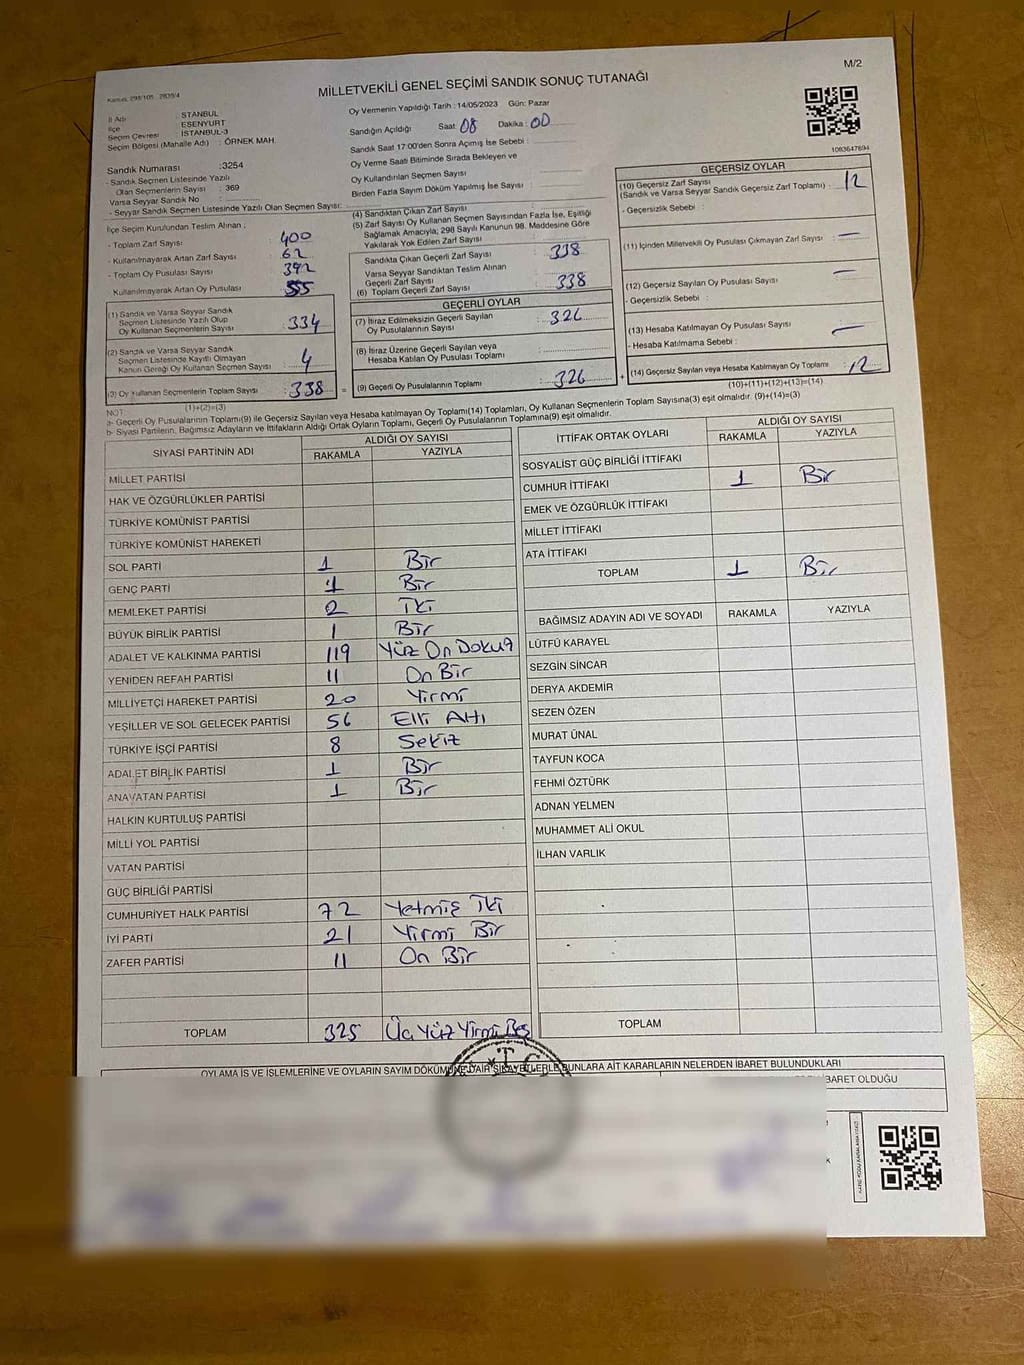 M/2
MİLLETVEKİLİ GENEL SEÇİMİ SANDIK SONUÇ TUTANAĞI
Kanun: 298/105 2839/4
İl Adı : İSTANBUL
İlçe : ESENYURT
Seçim Çevresi : İSTANBUL-3
Seçim Bölgesi (Mahalle Adı) : ÖRNEK MAH.
Oy Vermenin Yapıldığı Tarih : 14/05/2023 Gün: Pazar
Sandığın Açıldığı Saat: 08 Dakika : 00
Sandık Saat 17:00'den Sonra Açımış İse Sebebi :
Oy Verme Saati Bitiminde Sırada Bekleyen ve
Oy Kullandırılan Seçmen Sayısı
Birden Fazla Sayım Döküm Yapılmış İse Sayısı :
1083647694
Sandık Numarası :3254
- Sandık Seçmen Listesinde Yazılı
Olan Seçmenlerin Sayısı : 369
Varsa Seyyar Sandık No :
- Seyyar Sandık Seçmen Listesinde Yazılı Olan Seçmen Sayısı:
İlçe Seçim Kurulundan Teslim Alınan ;
- Toplam Zarf Sayısı : 400
- Kullanılmayarak Artan Zarf Sayısı : 62
- Toplam Oy Pusulası Sayısı : 392
Kullanılmayarak Artan Oy Pusulası : 55
(1) Sandık ve Varsa Seyyar Sandık
Seçmen Listesinde Yazılı Olup
Oy Kullanan Seçmenlerin Sayısı : 334
(2) Sandık ve Varsa Seyyar Sandık
Seçmen Listesinde Kayıtlı Olmayan
Kanun Gereği Oy Kullanan Seçmen Sayısı : 4
(3) Oy Kullanan Seçmenlerin Toplam Sayısı : 338
(1)+(2)=(3)
(4) Sandıktan Çıkan Zarf Sayısı
(5) Zarf Sayısı Oy Kullanan Seçmen Sayısından Fazla İse, Eşitliği
Sağlamak Amacıyla; 298 Sayılı Kanunun 98. Maddesine Göre
Yakılarak Yok Edilen Zarf Sayısı
Sandıkta Çıkan Geçerli Zarf Sayısı : 338
Varsa Seyyar Sandıktan Teslim Alınan
Geçerli Zarf Sayısı
(6) Toplam Geçerli Zarf Sayısı : 338
GEÇERLİ OYLAR
(7) İtiraz Edilmeksizin Geçerli Sayılan
Oy Pusulalarının Sayısı : 326
(8) İtiraz Üzerine Geçerli Sayılan veya
Hesaba Katılan Oy Pusulası Toplamı :
= (9) Geçerli Oy Pusulalarının Toplamı : 326
GEÇERSİZ OYLAR
(10) Geçersiz Zarf Sayısı
(Sandık ve Varsa Seyyar Sandık Geçersiz Zarf Toplamı) : 12
- Geçersizlik Sebebi :
(11) İçinden Milletvekili Oy Pusulası Çıkmayan Zarf Sayısı : —
(12) Geçersiz Sayılan Oy Pusulası Sayısı : —
- Geçersizlik Sebebi :
(13) Hesaba Katılmayan Oy Pusulası Sayısı : —
- Hesaba Katılmama Sebebi :
+ (14) Geçersiz Sayılan veya Hesaba Katılmayan Oy Toplamı : 12
(10)+(11)+(12)+(13)=(14)
NOT
a- Geçerli Oy Pusulalarının Toplamı(9) ile Geçersiz Sayılan veya Hesaba katılmayan Oy Toplamı(14) Toplamları, Oy Kullanan Seçmenlerin Toplam Sayısına(3) eşit olmalıdır. (9)+(14)=(3)
b- Siyasi Partilerin, Bağımsız Adayların ve İttifakların Aldığı Ortak Oyların Toplamı, Geçerli Oy Pusulalarının Toplamına(9) eşit olmalıdır.
SİYASİ PARTİNİN ADI ALDIĞI OY SAYISI
RAKAMLA YAZIYLA
MİLLET PARTİSİ
HAK VE ÖZGÜRLÜKLER PARTİSİ
TÜRKİYE KOMÜNİST PARTİSİ
TÜRKİYE KOMÜNİST HAREKETİ
SOL PARTİ 1 Bir
GENÇ PARTİ 1 Bir
MEMLEKET PARTİSİ 2 İki
BÜYÜK BİRLİK PARTİSİ 1 Bir
ADALET VE KALKINMA PARTİSİ 119 Yüz On Dokuz
YENİDEN REFAH PARTİSİ 11 On Bir
MİLLİYETÇİ HAREKET PARTİSİ 20 Yirmi
YEŞİLLER VE SOL GELECEK PARTİSİ 56 Elli Altı
TÜRKİYE İŞÇİ PARTİSİ 8 Sekiz
ADALET BİRLİK PARTİSİ 1 Bir
ANAVATAN PARTİSİ 1 Bir
HALKIN KURTULUŞ PARTİSİ
MİLLİ YOL PARTİSİ
VATAN PARTİSİ
GÜÇ BİRLİĞİ PARTİSİ
CUMHURİYET HALK PARTİSİ 72 Yetmiş İki
İYİ PARTİ 21 Yirmi Bir
ZAFER PARTİSİ 11 On Bir
TOPLAM 325 Üç Yüz Yirmi Beş
İTTİFAK ORTAK OYLARI ALDIĞI OY SAYISI
RAKAMLA YAZIYLA
SOSYALİST GÜÇ BİRLİĞİ İTTİFAKI
CUMHUR İTTİFAKI 1 Bir
EMEK VE ÖZGÜRLÜK İTTİFAKI
MİLLET İTTİFAKI
ATA İTTİFAKI
TOPLAM 1 Bir
BAĞIMSIZ ADAYIN ADI VE SOYADI RAKAMLA YAZIYLA
LÜTFÜ KARAYEL
SEZGİN SİNCAR
DERYA AKDEMİR
SEZEN ÖZEN
MURAT ÜNAL
TAYFUN KOCA
FEHMİ ÖZTÜRK
ADNAN YELMEN
MUHAMMET ALİ OKUL
İLHAN VARLIK
TOPLAM
T.C.
OYLAMA İŞ VE İŞLEMLERİNE VE OYLARIN SAYIM DÖKÜMÜNE DAİR ŞİKAYETLERLE BUNLARA AİT KARARLARIN NELERDEN İBARET BULUNDUKLARI
İBARET OLDUĞU